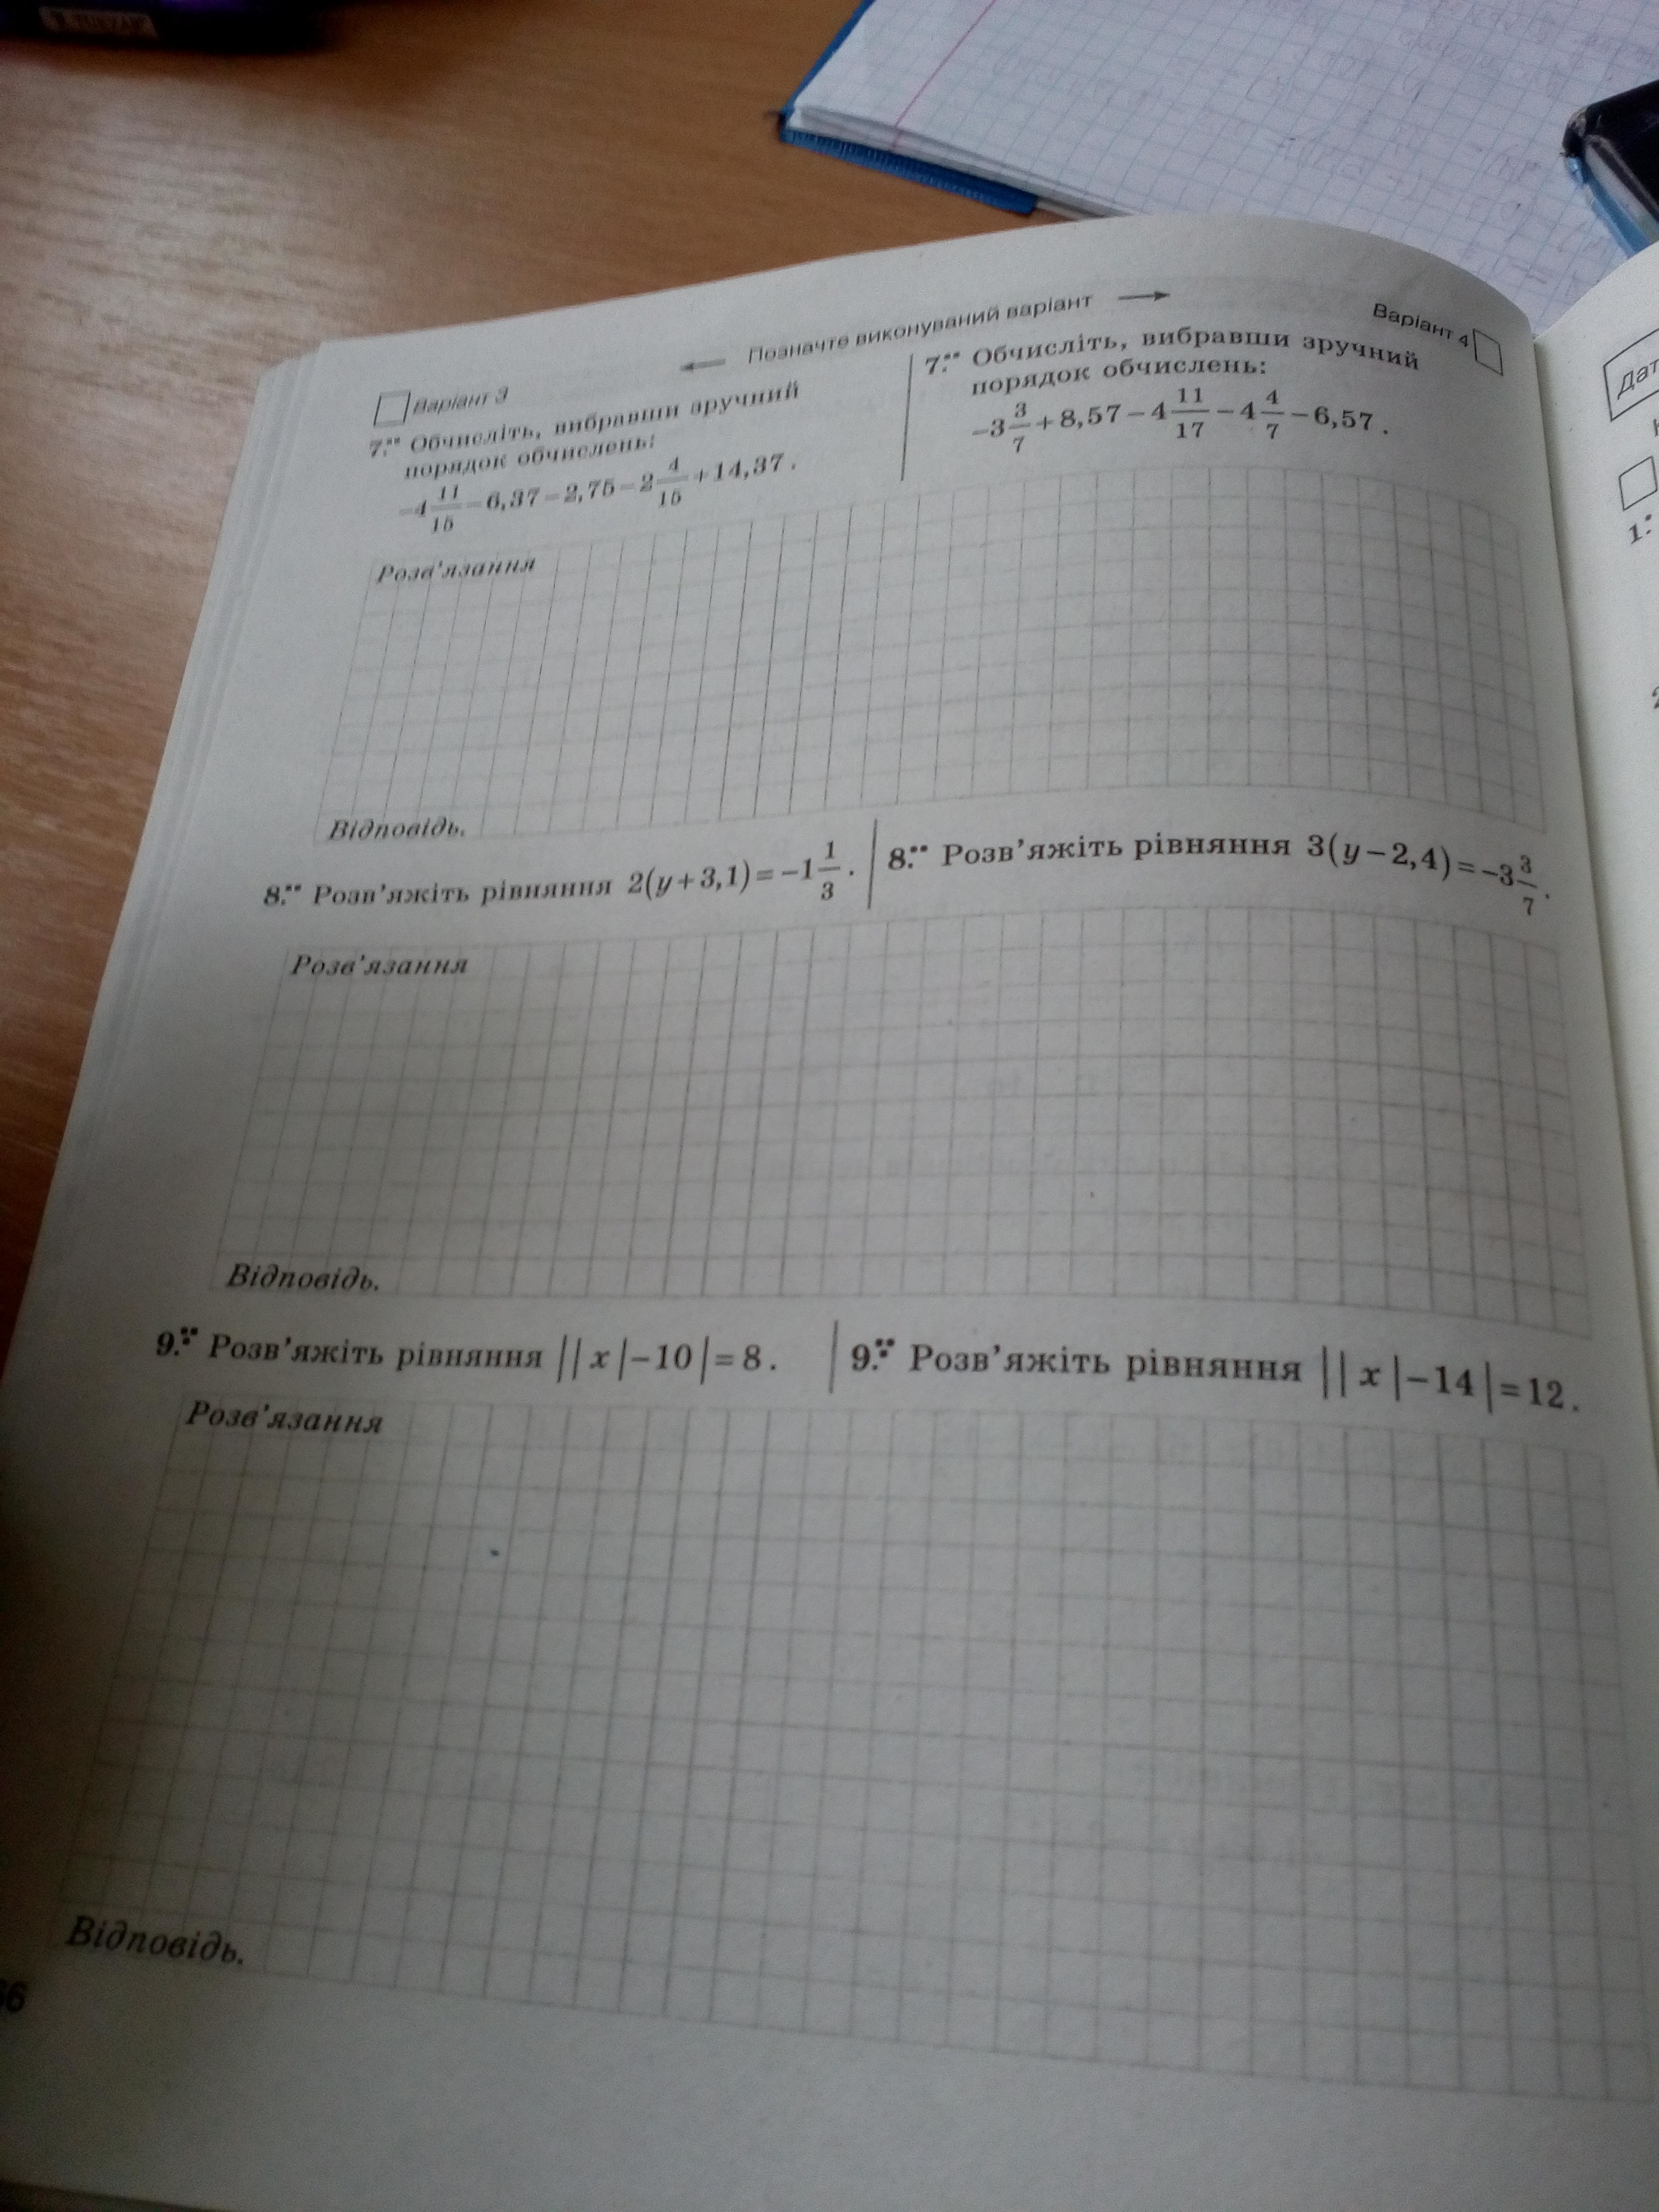 ← Позначте виконуваний варіант →
Варіант 3
7.•• Обчисліть, вибравши зручний
порядок обчислень:
−4 11/15 − 6,37 − 2,75 − 2 4/15 + 14,37.
Варіант 4
7.•• Обчисліть, вибравши зручний
порядок обчислень:
−3 3/7 + 8,57 − 4 11/17 − 4 4/7 − 6,57.
Розв'язання
Відповідь.
8.•• Розв'яжіть рівняння 2(y+3,1)=−1 1/3.
8.•• Розв'яжіть рівняння 3(y−2,4)=−3 3/7.
Розв'язання
Відповідь.
9.•• Розв'яжіть рівняння ||x|−10|=8.
9.•• Розв'яжіть рівняння ||x|−14|=12.
Розв'язання
Відповідь.
Дат
1.•